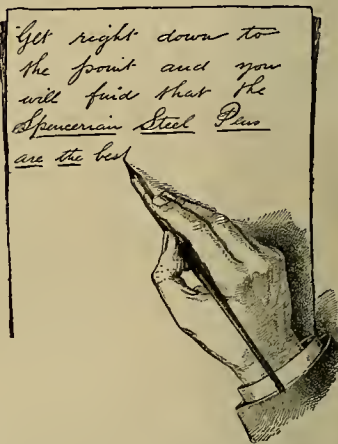 Get right down to
the point and you
will find that the
Spencerian Steel Pens
are the best